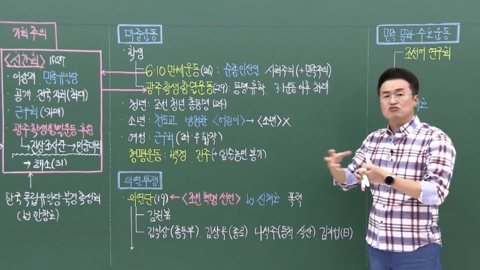 좌회 주의
<신간회> 1927
이상재 민중대회
공개 전국 지회 (최대)
근우회 (자매)
광주학생항일운동 후원
→ 해소(31)
(by 안창호)
대중운동
학생
6·10 만세운동(26) : 순종 인산일 사회주의(+민족주의)
광주학생항일운동(29) 동맹휴학 3·1운동 이후 최대
청년 : 조선 청년 총동맹(24)
소년 : 천도교 방정환 <어린이> → <소년> X
여성 : 근우회
형평운동 : 백정 진주
의열투쟁
의열단(19) ← <조선 혁명 선언> by 신채호 폭력
김익상(총독부) 김상옥(종로) 나석주(동척 식산) 김지섭(日)
민족 문화 수호운동
조선어 연구회